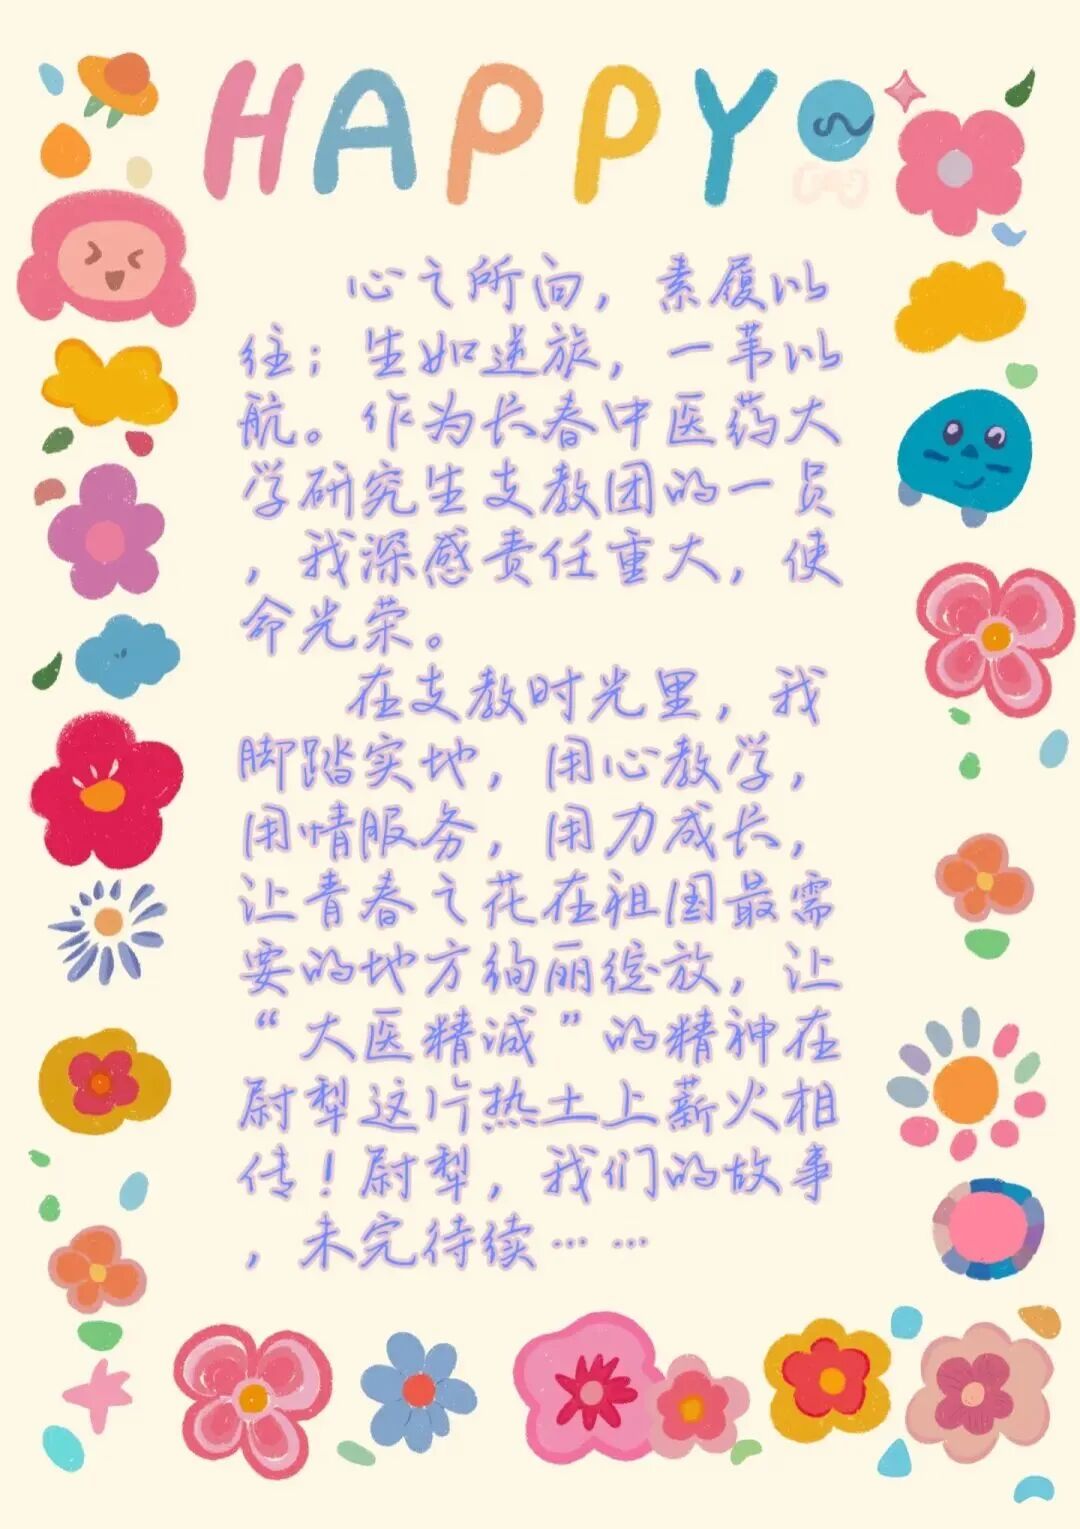 HAPPY
心之所向，素履以
往；生如逆旅，一苇以
航。作为长春中医药大
学研究生支教团的一员
，我深感责任重大，使
命光荣。
在支教时光里，我
脚踏实地，用心教学，
用情服务，用力成长，
让青春之花在祖国最需
要的地方绚丽绽放，让
“大医精诚”的精神在
尉犁这片热土上薪火相
传！尉犁，我们的故事
，未完待续……